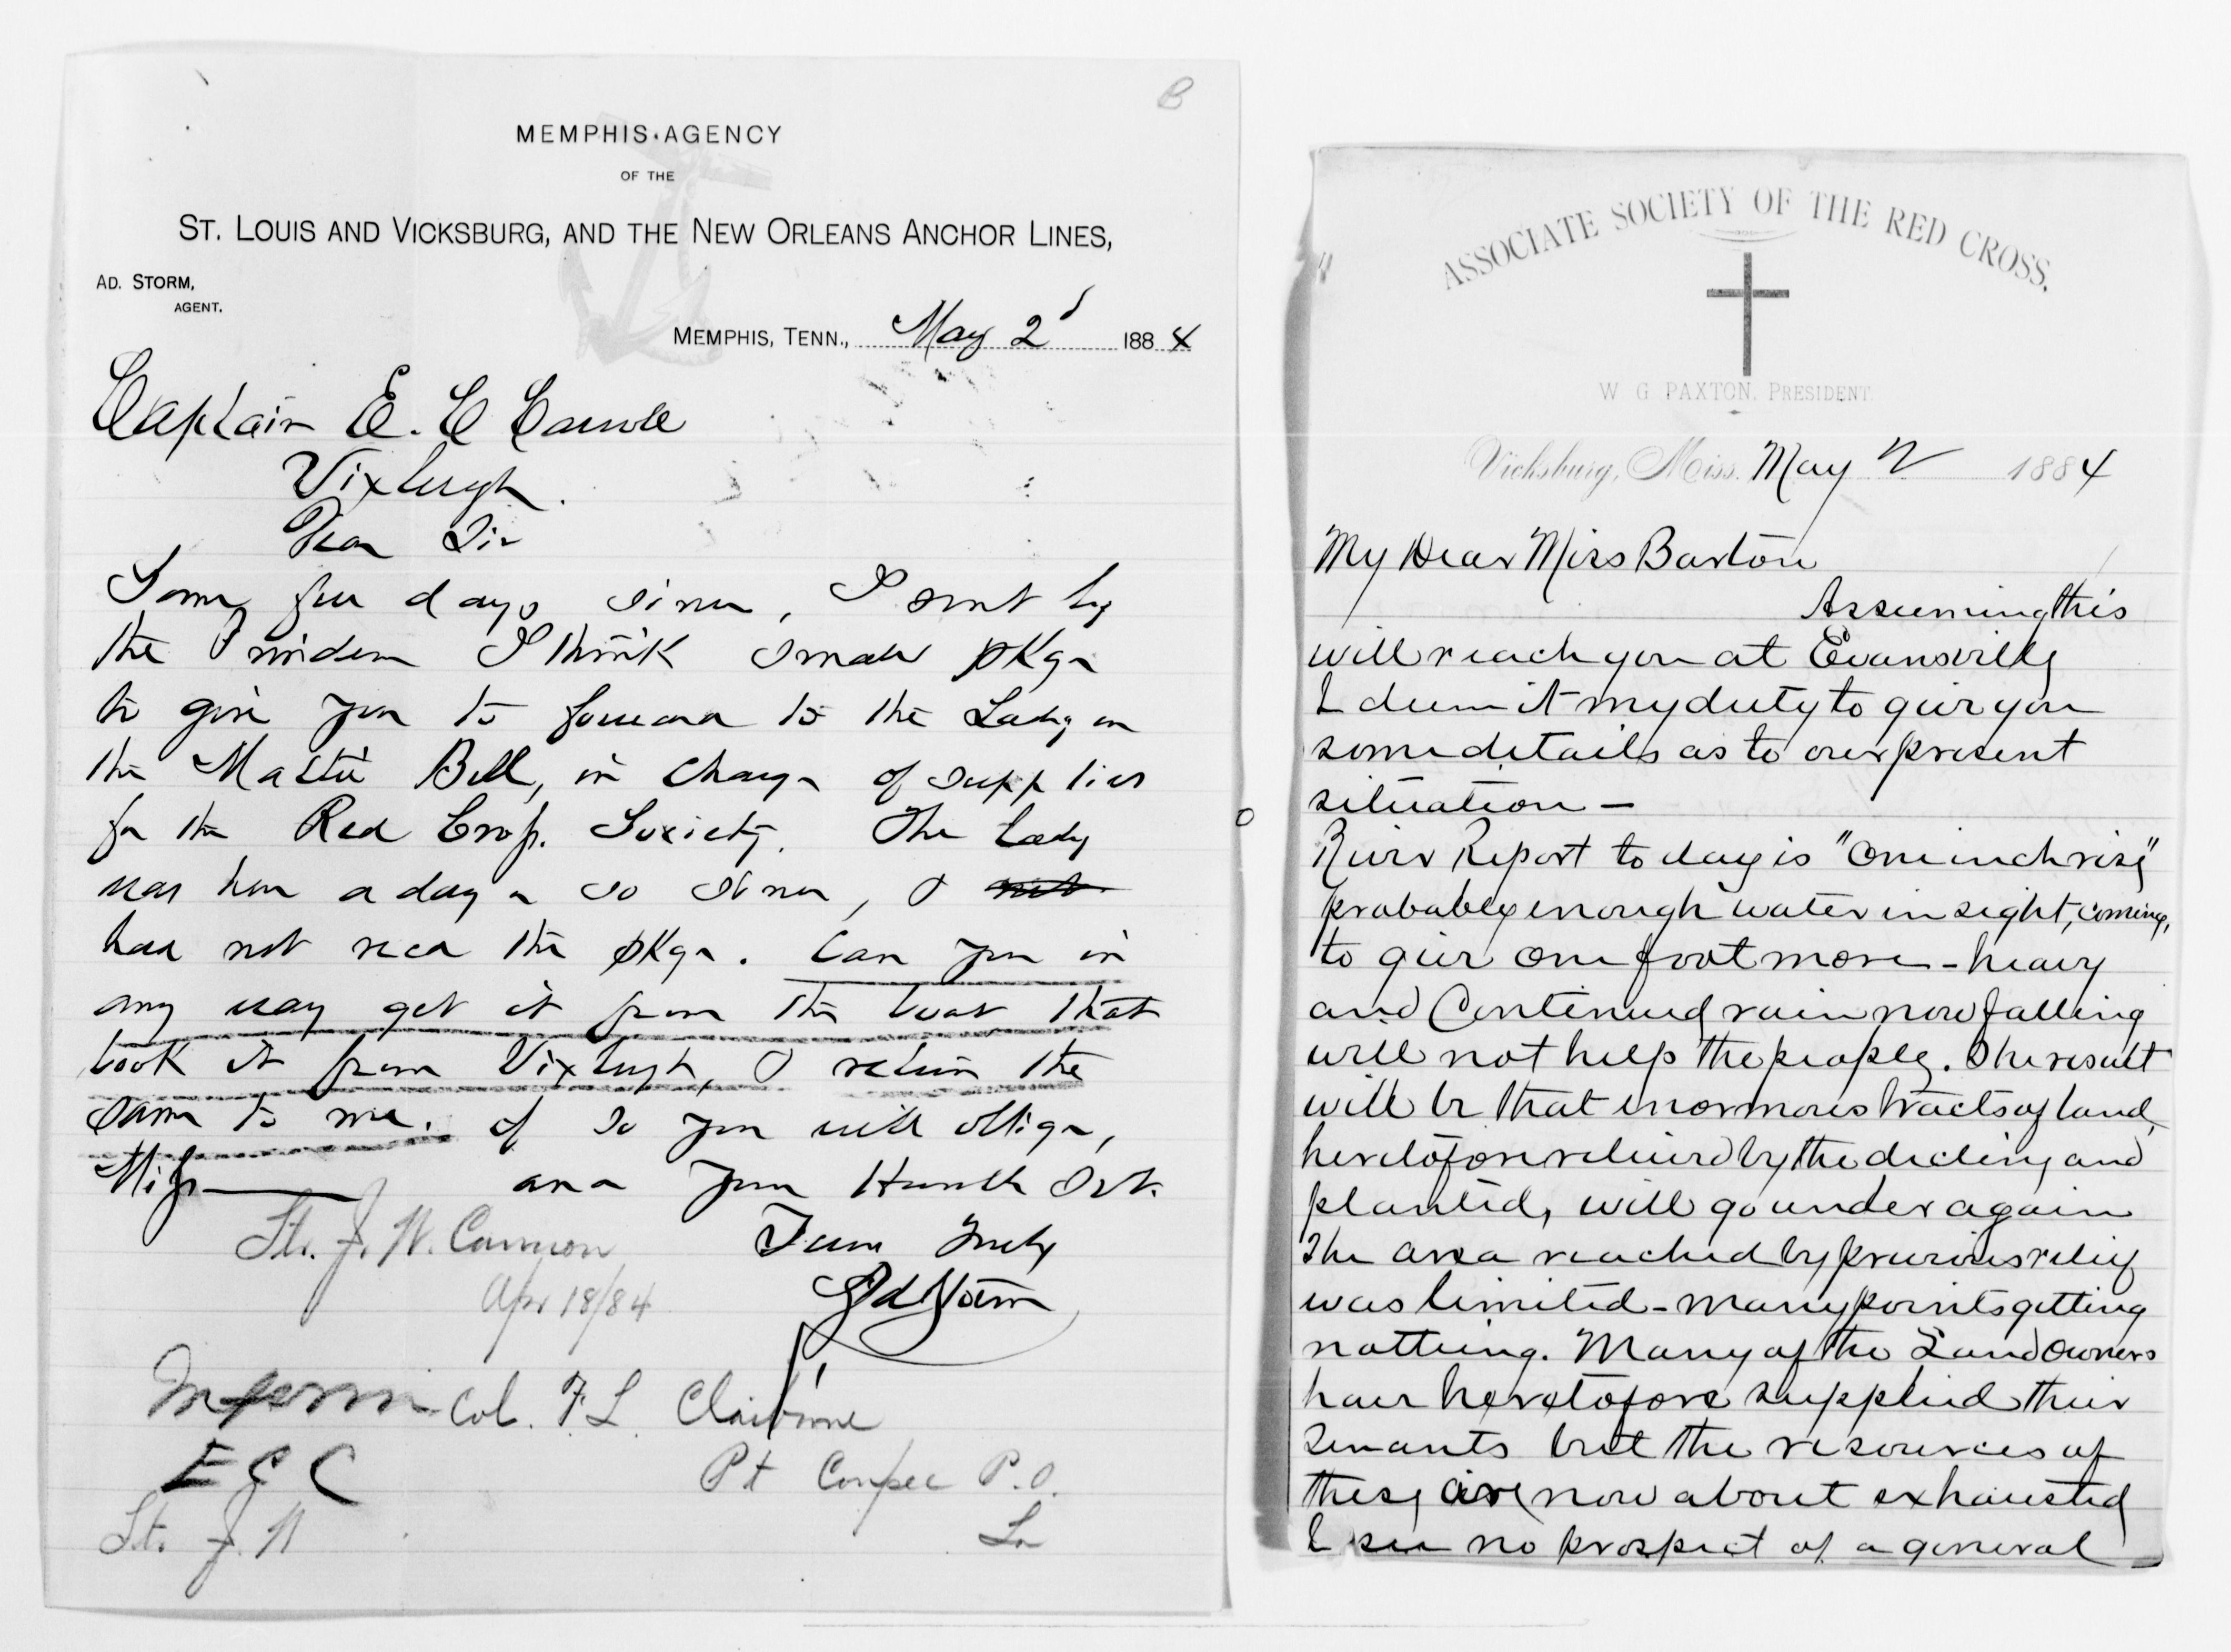 B
MEMPHIS AGENCY
OF THE
ST. LOUIS AND VICKSBURG, AND THE NEW ORLEANS ANCHOR LINES,
AD. STORM,
AGENT.
MEMPHIS, TENN., May 2d 1884
Captain E. C Carroll
Vixburgh.
Dear Sir
Some few days since, I sent by
the I think small pkge
to give you to forward to the Lady on
the Mattie Bell, in charge of supplies
for the Red Cross. Society. The Lady
was here a day or so since, &
had not recd the pkge. Can you in
any way get it from the boat that
took it from Vixburgh, & return the
same to me. if so you will oblige,
and your Humble Svt.
Yours Truly
Ad Storm
Str. J. W. Cannon
Apr 18/84
Inform Col. F. L Claiborne
E C C
Pt Coupee P.O.
La
Str J. W
ASSOCIATE SOCIETY OF THE RED CROSS.
W. G. PAXTON. PRESIDENT.
Vicksburg, Miss. May 2 1884
My Dear Miss Barton
Assuming this
will reach you at Evansville
I deem it my duty to give you
some details as to our present
situation —
River Report to day is "One inch rise"
probably enough water in sight, coming,
to give one foot more - heavy
and Continued rain now falling
will not help the people. The result
will be that enormous tracts of land,
heretofore relieved by the decline and
planted, will go under again
The area reached by previous relief
was limited - many points getting
nothing. Many of the Land Owners
have heretofore supplied their
tenants but the resources of
these are now about exhausted
I see no prospect of a general